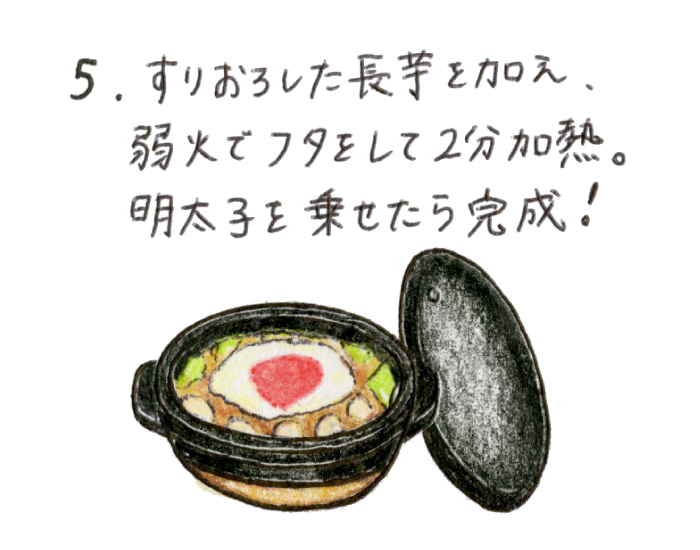 5. すりおろした長芋を加え、
弱火でフタをして2分加熱。
明太子を乗せたら完成!